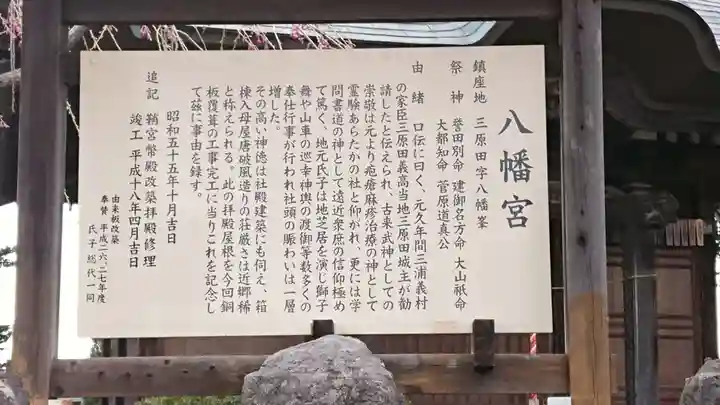 八幡宮
鎮座地 三原田字八幡峯
祭神 誉田別命 建御名方命 大山祇命
大都知命 菅原道真公
由緒 口伝に曰く、元久年間三浦義村
の家臣三原田義高当地三原田城主が勧
請したと伝えられ、古来武神としての
崇敬は元より疱瘡麻疹治療の神として
霊験あらたかの社と仰がれ、更には学
問書道の神として遠近衆庶の信仰極め
て篤く、地元氏子は地芝居を演じ獅子
舞や山車の巡幸神輿の渡御等数多くの
奉仕行事が行われ社頭の賑わいは一層
増した。
その高い神徳は社殿建築にも伺え、箱
棟入母屋唐破風造りの荘厳さは近郷稀
と称えられる。此の拝殿屋根を今回銅
板覆葺の工事完工に当りこれを記念し
て茲に事由を録す。
昭和五十五年十月吉日
追記 鞘宮幣殿改築拝殿修理
竣工 平成十八年四月吉日
由来板改築
奉賛 平成二六、二七年度
氏子総代一同